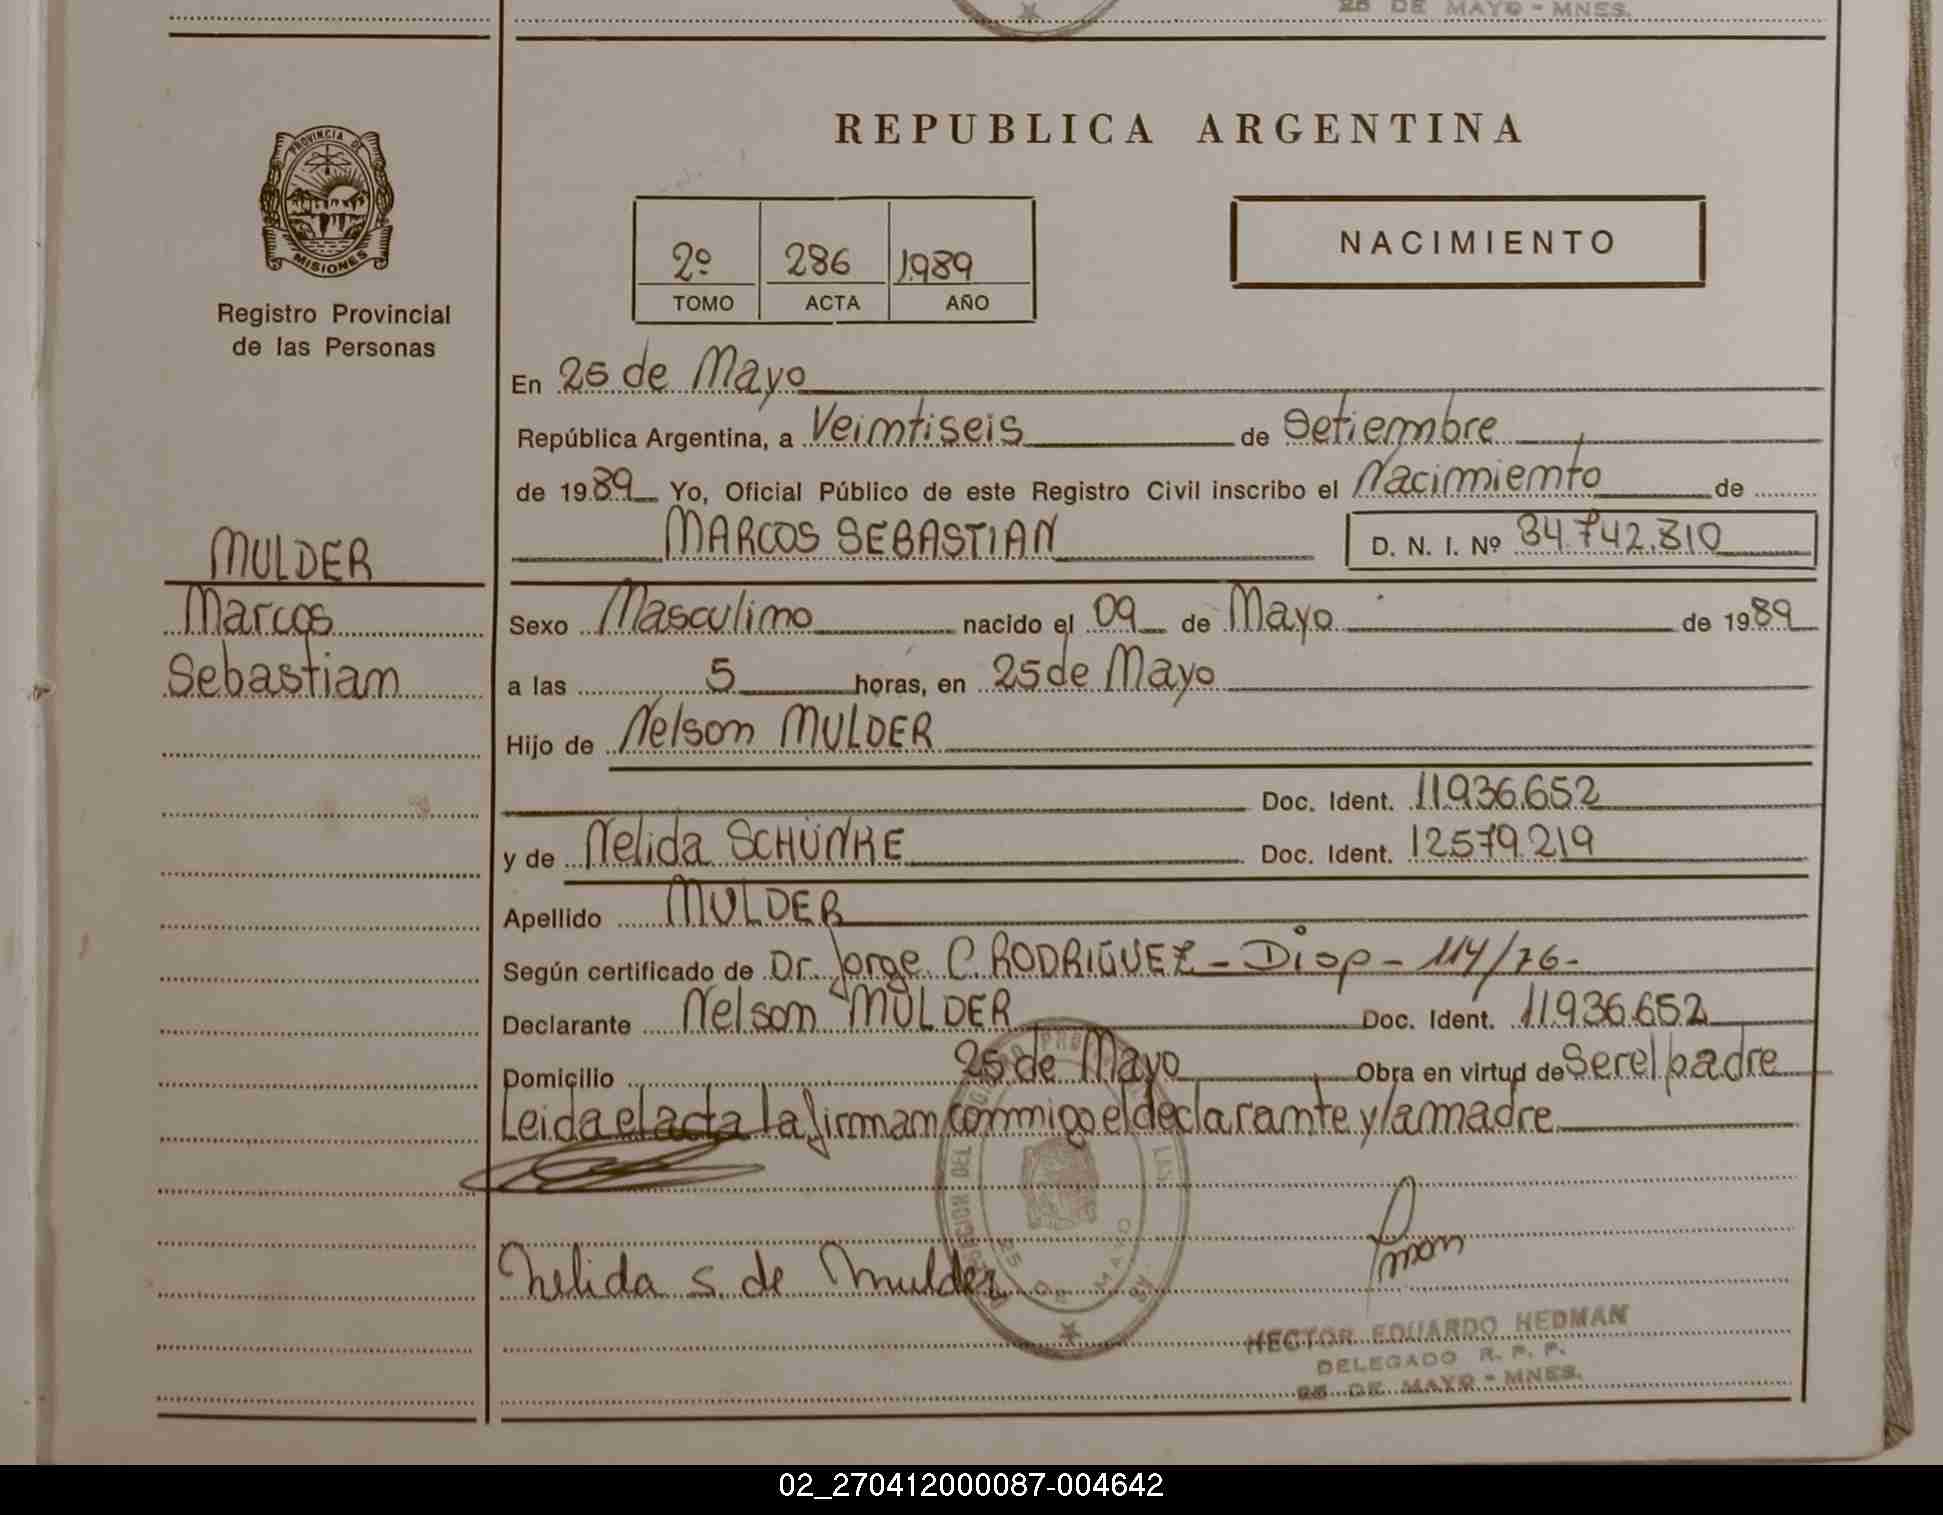 25 DE MAYO - MNES.
REPUBLICA ARGENTINA
PROVINCIA DE
MISIONES
Registro Provincial
de las Personas
2º 286 1989
TOMO ACTA AÑO
NACIMIENTO
En 25 de Mayo
República Argentina, a Veintiseis de Setiembre
de 1989 Yo, Oficial Público de este Registro Civil inscribo el Nacimiento de
MARCOS SEBASTIAN D. N. I. Nº 34.742.810
MULDER
Marcos
Sebastian
Sexo Masculino nacido el 09 de Mayo de 1989
a las 5 horas, en 25 de Mayo
Hijo de Nelson MULDER
Doc. Ident. 11.936.652
y de Nelida SCHÜNKE Doc. Ident. 12.579.219
Apellido MULDER
Según certificado de Dr. Jorge C. RODRIGUEZ - Disp - 114/76-
Declarante Nelson MULDER Doc. Ident. 11.936.652
Domicilio 25 de Mayo Obra en virtud de Ser el padre
Leida el acta la firman conmigo el declarante y la madre
Nelida S. de Mulder
25 DE MAYO
HECTOR EDUARDO HEDMAN
DELEGADO R. P. P.
25 DE MAYO - MNES.
02_270412000087-004642